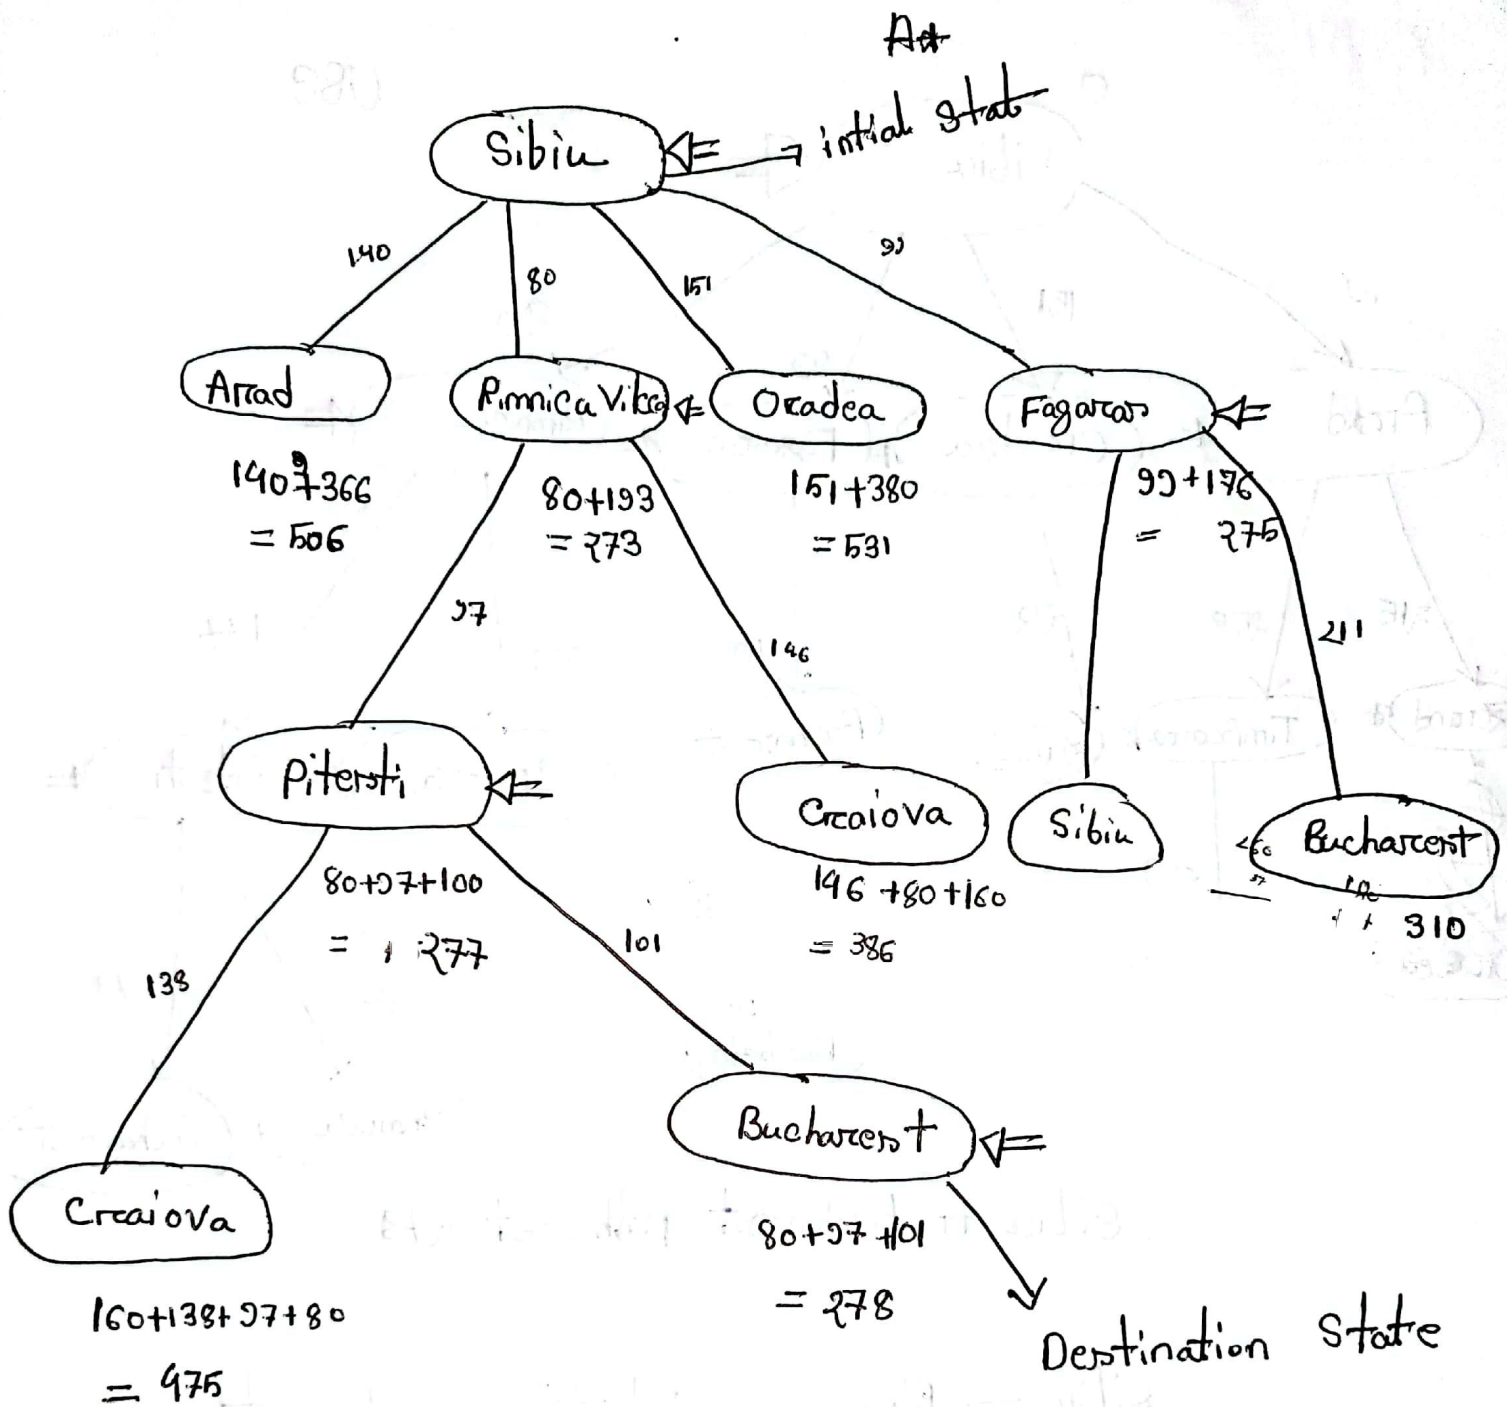 A*
Sibiu
intial stat
140
80
151
99
Arad
Rimnica Vilcea
Oradea
Fagaras
140+366
= 506
80+193
= 273
151+380
= 531
99+176
= 275
97
146
211
Pitersti
Craiova
Sibiu
Bucharest
80+97+100
= 277
146+80+160
= 386
310
138
101
Craiova
Bucharest
160+138+97+80
= 475
80+97+101
= 278
Destination State